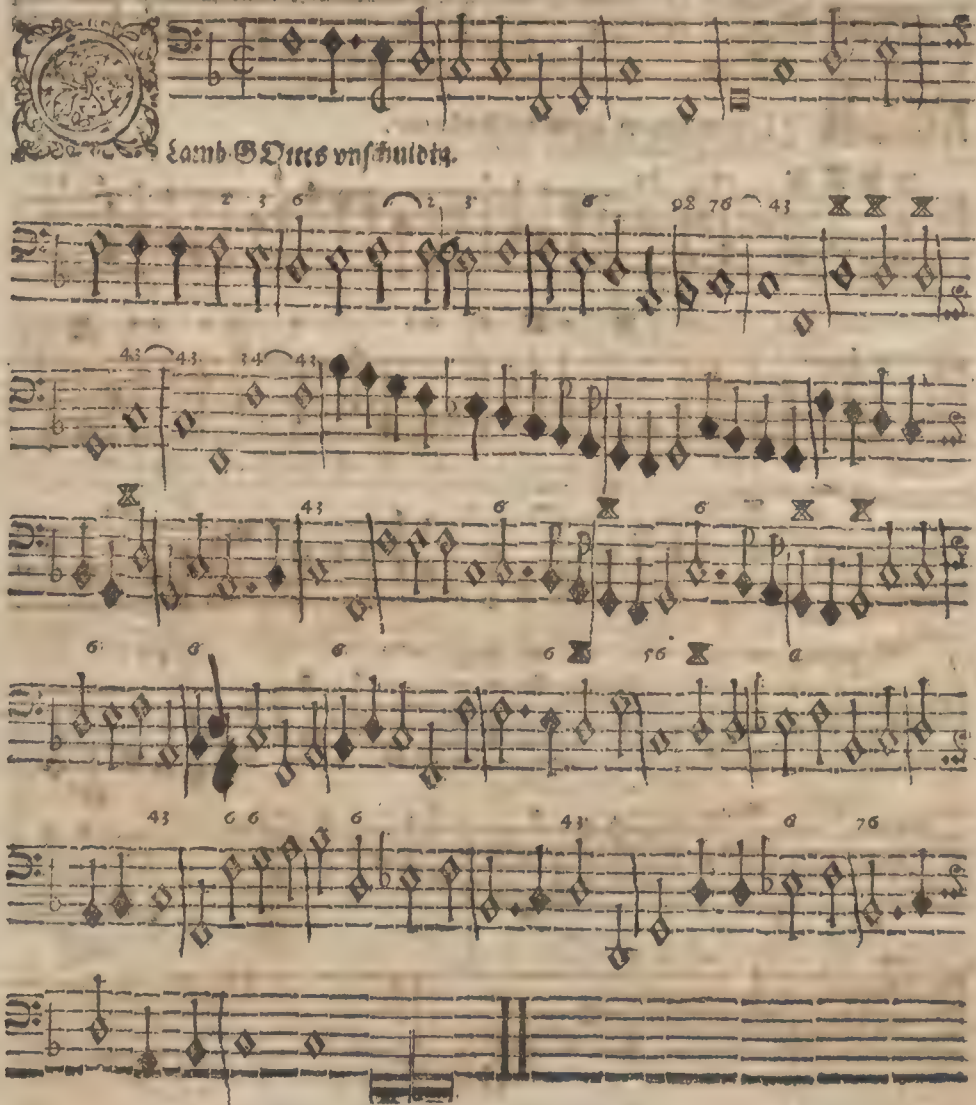 O
Lamb GOttes vnschuldig.
2 3 6 2 3 6 98 76 43
43 43 34 43
43 6 6
6 6 6 6 56 6
43 6 6 6 43 6 76